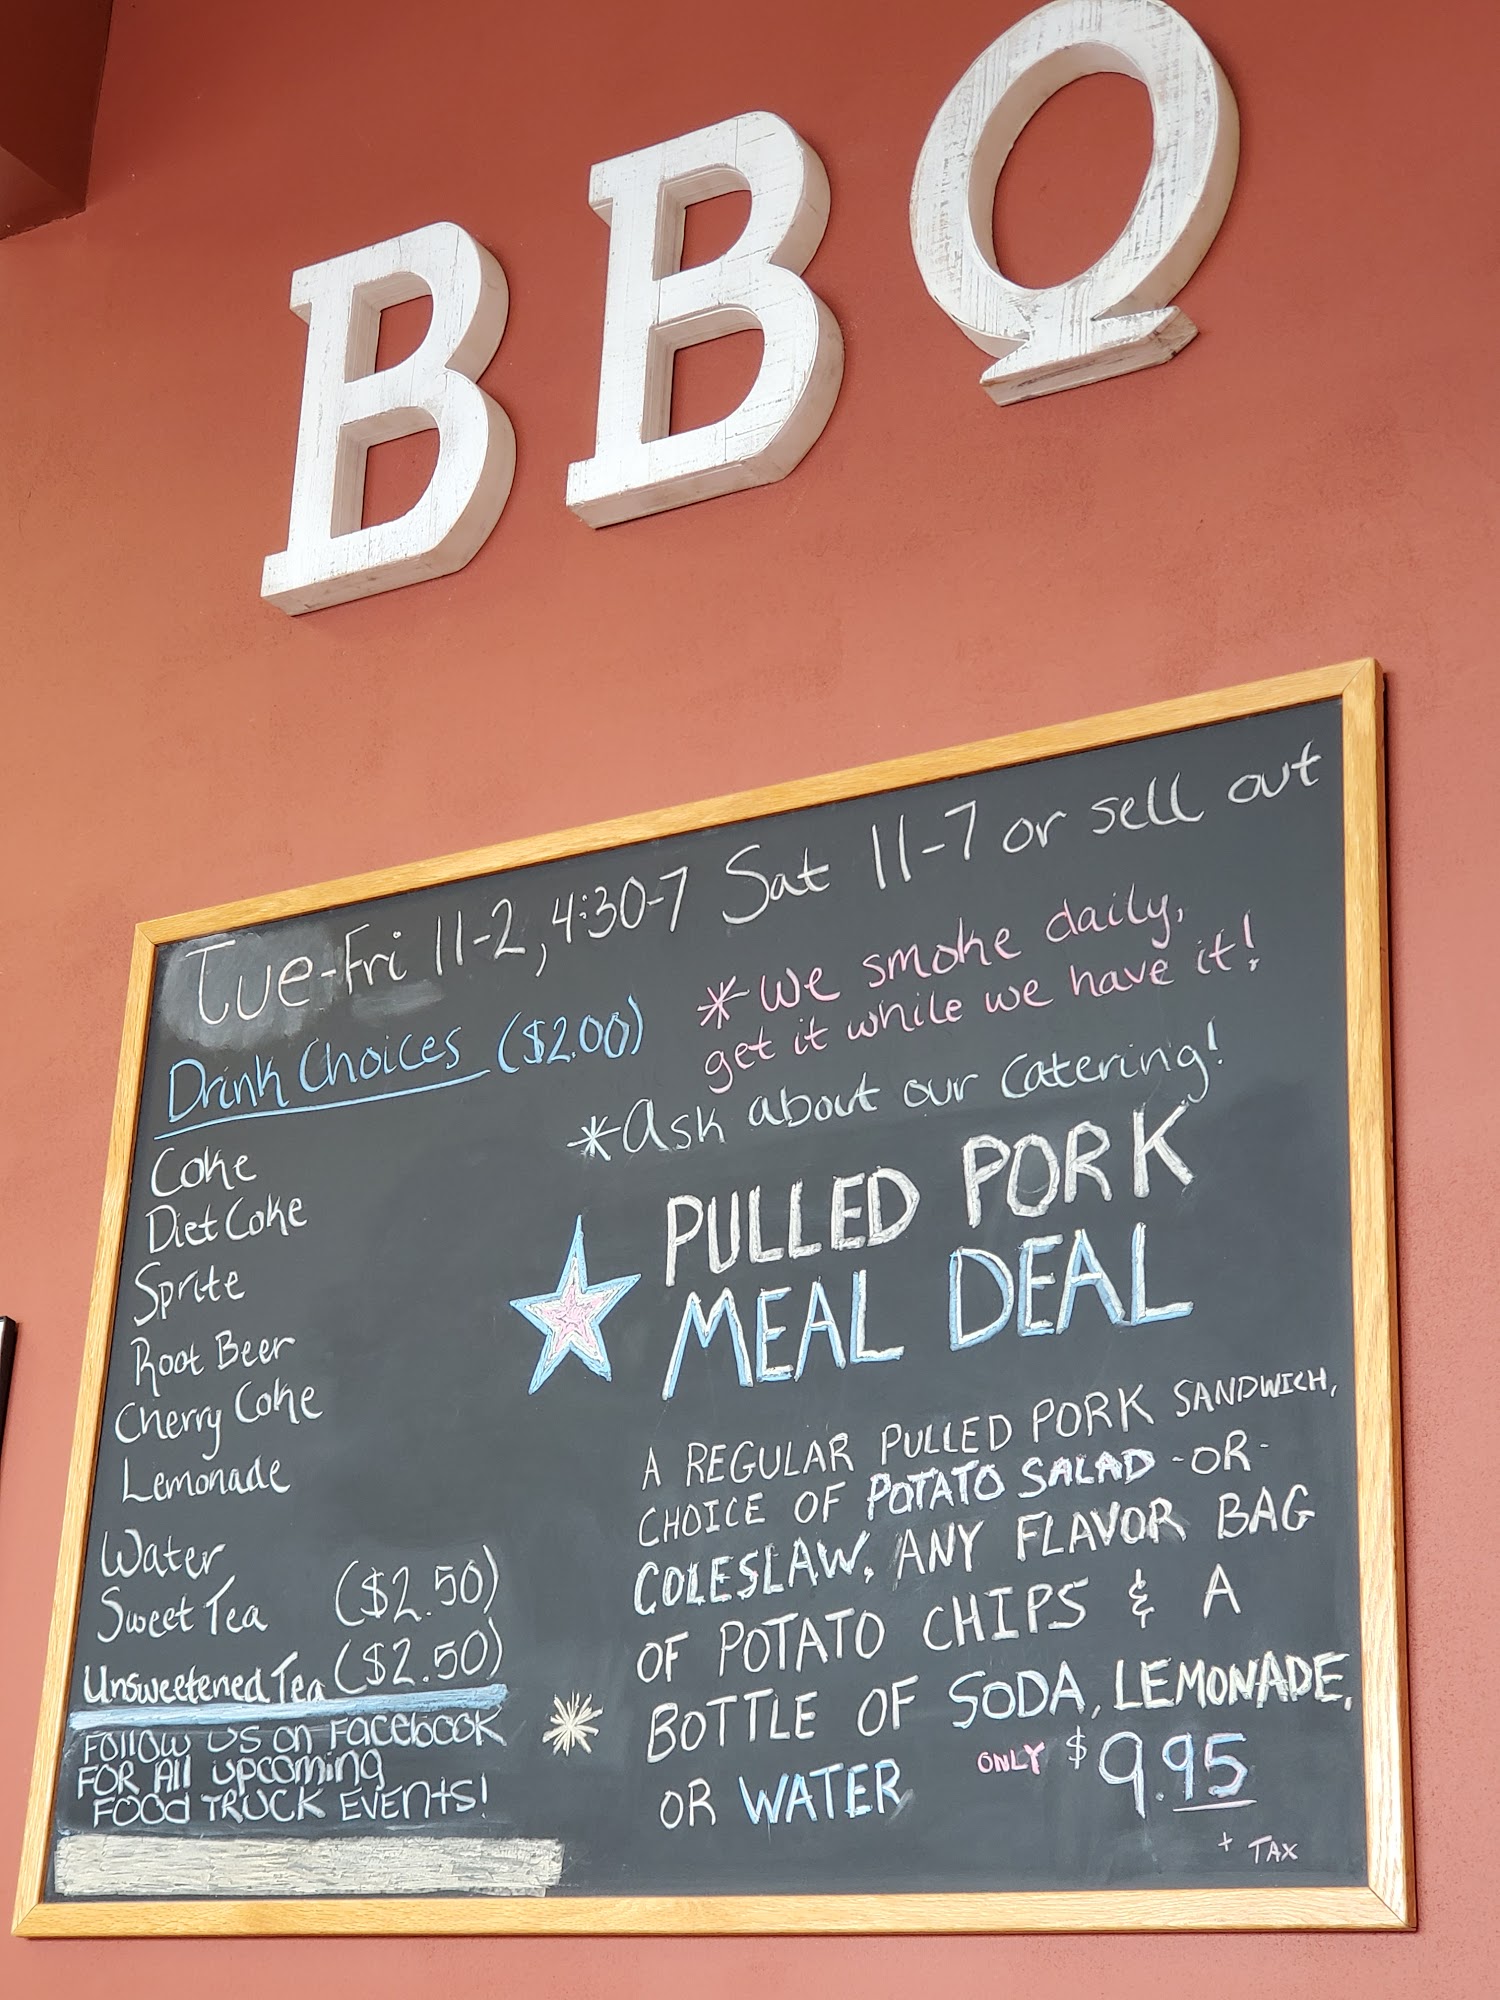 BBQ
Tue-Fri 11-2, 4:30-7 Sat 11-7 or sell out
Drink Choices ($2.00)
Coke
Diet Coke
Sprite
Root Beer
Cherry Coke
Lemonade
Water
Sweet Tea ($2.50)
Unsweetened Tea ($2.50)
Follow us on Facebook
FOR All upcoming
FOOd TRUCK EVEnts!
*We smoke daily,
get it while we have it!
*Ask about our Catering!
PULLED PORK
MEAL DEAL
A REGULAR PULLED PORK SANDWICH,
CHOICE OF POTATO SALAD -OR-
COLESLAW, ANY FLAVOR BAG
OF POTATO CHIPS & A
BOTTLE OF SODA, LEMONADE,
OR WATER ONLY $9.95
+ TAX